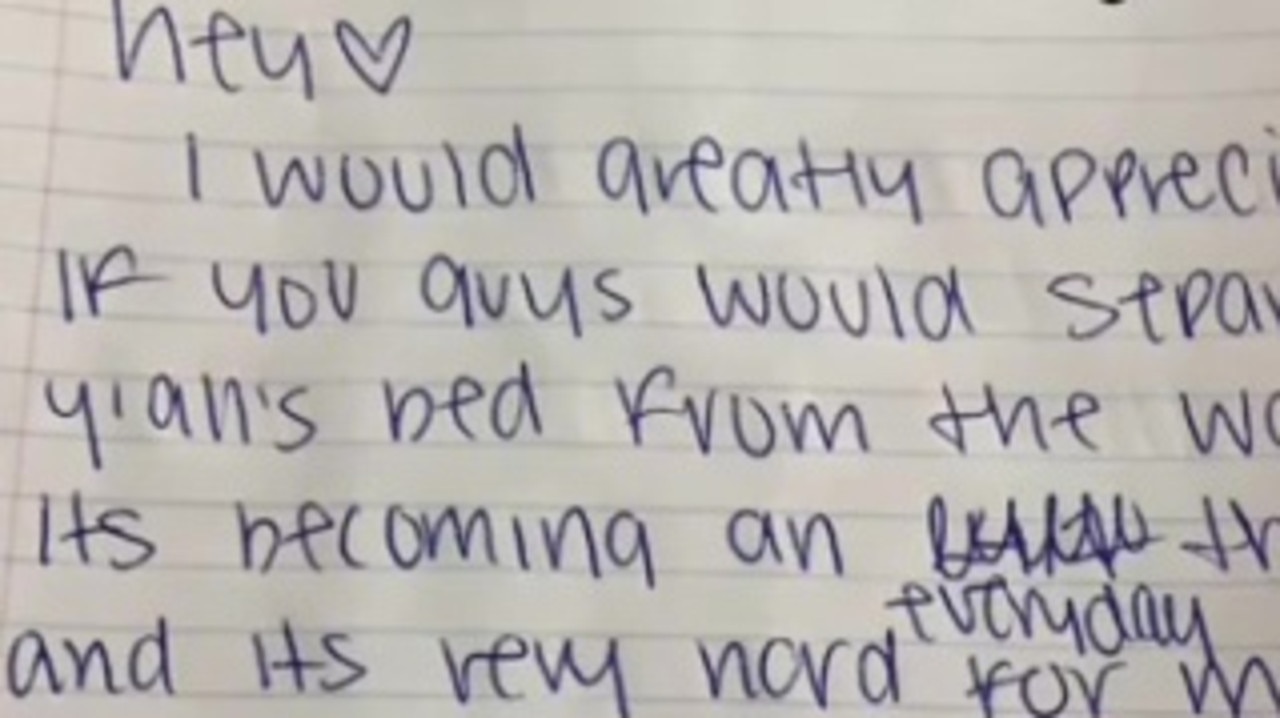 hey♡
I would greatly appreci
If you guys would separ
y'all's bed from the wa
Its becoming an th
everyday
and its very hard for m